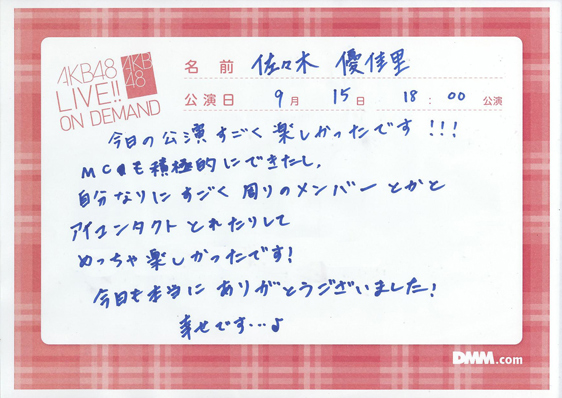 AKB48
LIVE!!
ON DEMAND
AKB
48
名前 佐々木 優佳里
公演日 9月 15日 18:00 公演
今日の公演すごく楽しかったです!!!
MCも積極的にできたし、
自分なりにすごく周りのメンバーとかと
アイコンタクトとれたりして
めっちゃ楽しかったです!
今日も本当にありがとうございました!
幸せです…♪
DMM.com